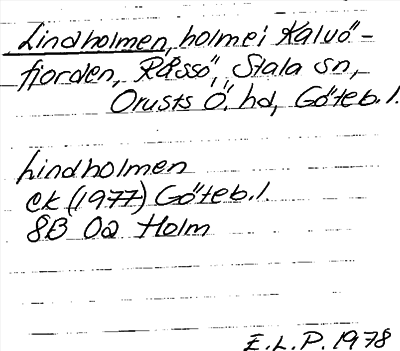 Lindholmen, holme i Kalvö-
fjorden, Råssö, Stala sn,
Orusts Ö. hd, Göteb. l.
Lindholmen
ek (1977) Göteb. l.
8B 0a Holm
E. L. P. 1978